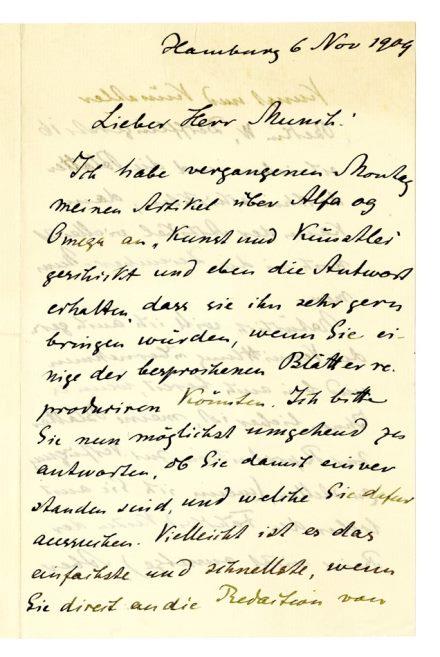 Hamburg 6 Nov 1909
Lieber Herr Munch!
Ich habe vergangenen Montag
meinen Artikel über Alfa og
Omega an „Kunst und Künstler
geschickt und eben die Antwort
erhalten, dass sie ihn sehr gern
bringen würden, wenn Sie ei-
nige der besprochenen Blätter re-
produziren könnten. Ich bitte
Sie nun möglichst umgehend zu
antworten, ob Sie damit einver
standen sind, und welche Sie dafür
aussuchen. Vielleicht ist es das
einfachste und schnellste, wenn
Sie direct an die Redaction von